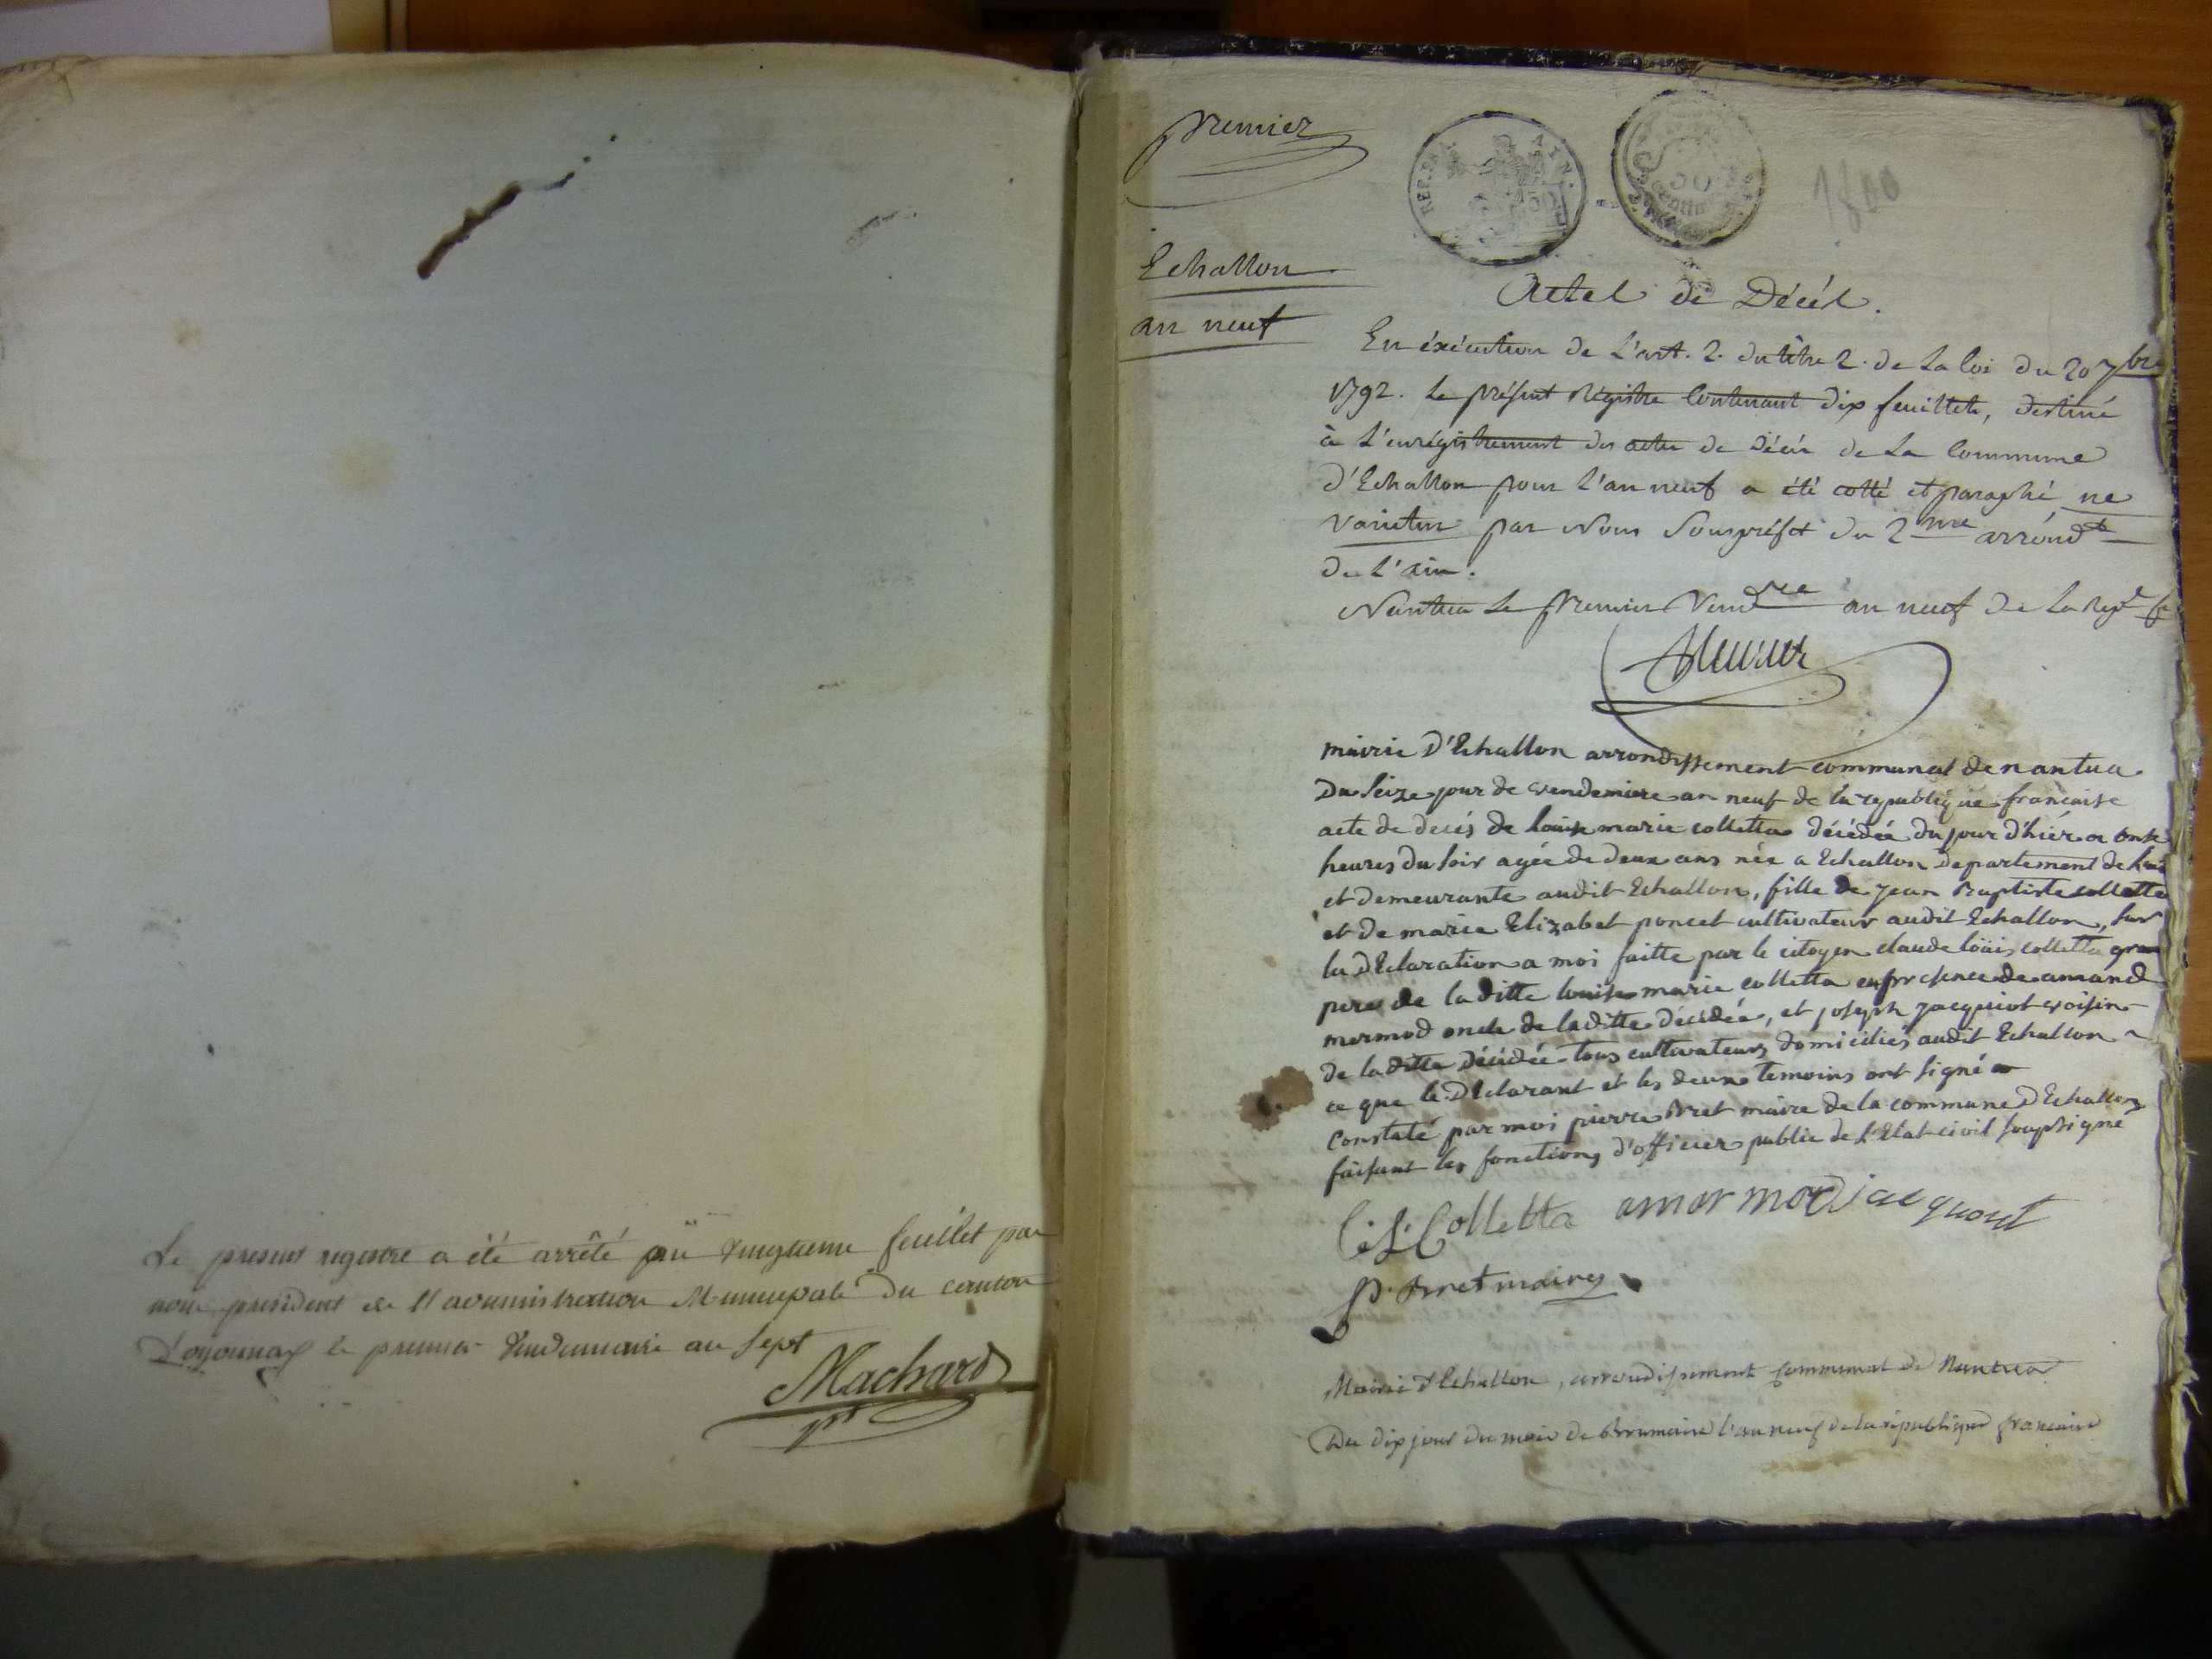 Le present registre a été arrêté au vingtieme feuillet par
nous president de l'administration Municipale du canton
D'oyonnax le premier Vendemiaire an sept
Machard
pt
premier
REP. FRA. AIN.
50
centimes
1800
Echallon
an neuf
Actes de Décès.
En éxécution de L'art. 2. du titre 2. de La loi du 20 7bre
1792. Le présent Régistre Contenant dix feuillets, destiné
à L'enrégistrement des actes de Décès de La Commune
d'Echallon pour L'an neuf a été cotté et paraphé ne
varietur par Nous Souspréfet du 2me arrondt
De L'ain.
Nantua Le premier Vendre an neuf de La Repe fr
mairie D'Echallon arrondissement communal de nantua
Du Seize jour de vendemiere an neuf de la republique francaise
acte de decés de louise marie colletta décédée du jour d'hiér a onse
heures du soir agée de deux ans née a Echallon Departement de lain
et demeurante audit Echallon, fille de jean Baptiste colletta
et de marie Elizabet poncet cultivateur audit Echallon, sur
la Déclaration a moi faitte par le citoyen claude loüis colletta gran
pere de laditte louise marie colletta en presence de amand
mermod oncle de laditte decedée, et joseph jacquiot voisin
de laditte décédée tous cultivateurs domiciliés audit Echallon
ce que le Déclarant et les deux temoins ont signé
Constaté par moi pierre Bret maire de la commune D'Echallon
faisant les fonctions d'officier public de l'Etat civil soussigné
C. L. Colletta amermod jacquout
P. Bret maire
Mairie d'Echallon, arrondissement Communal de Nantua
Du dix jour du mois de Brumaire l'an neuf de la république francaise